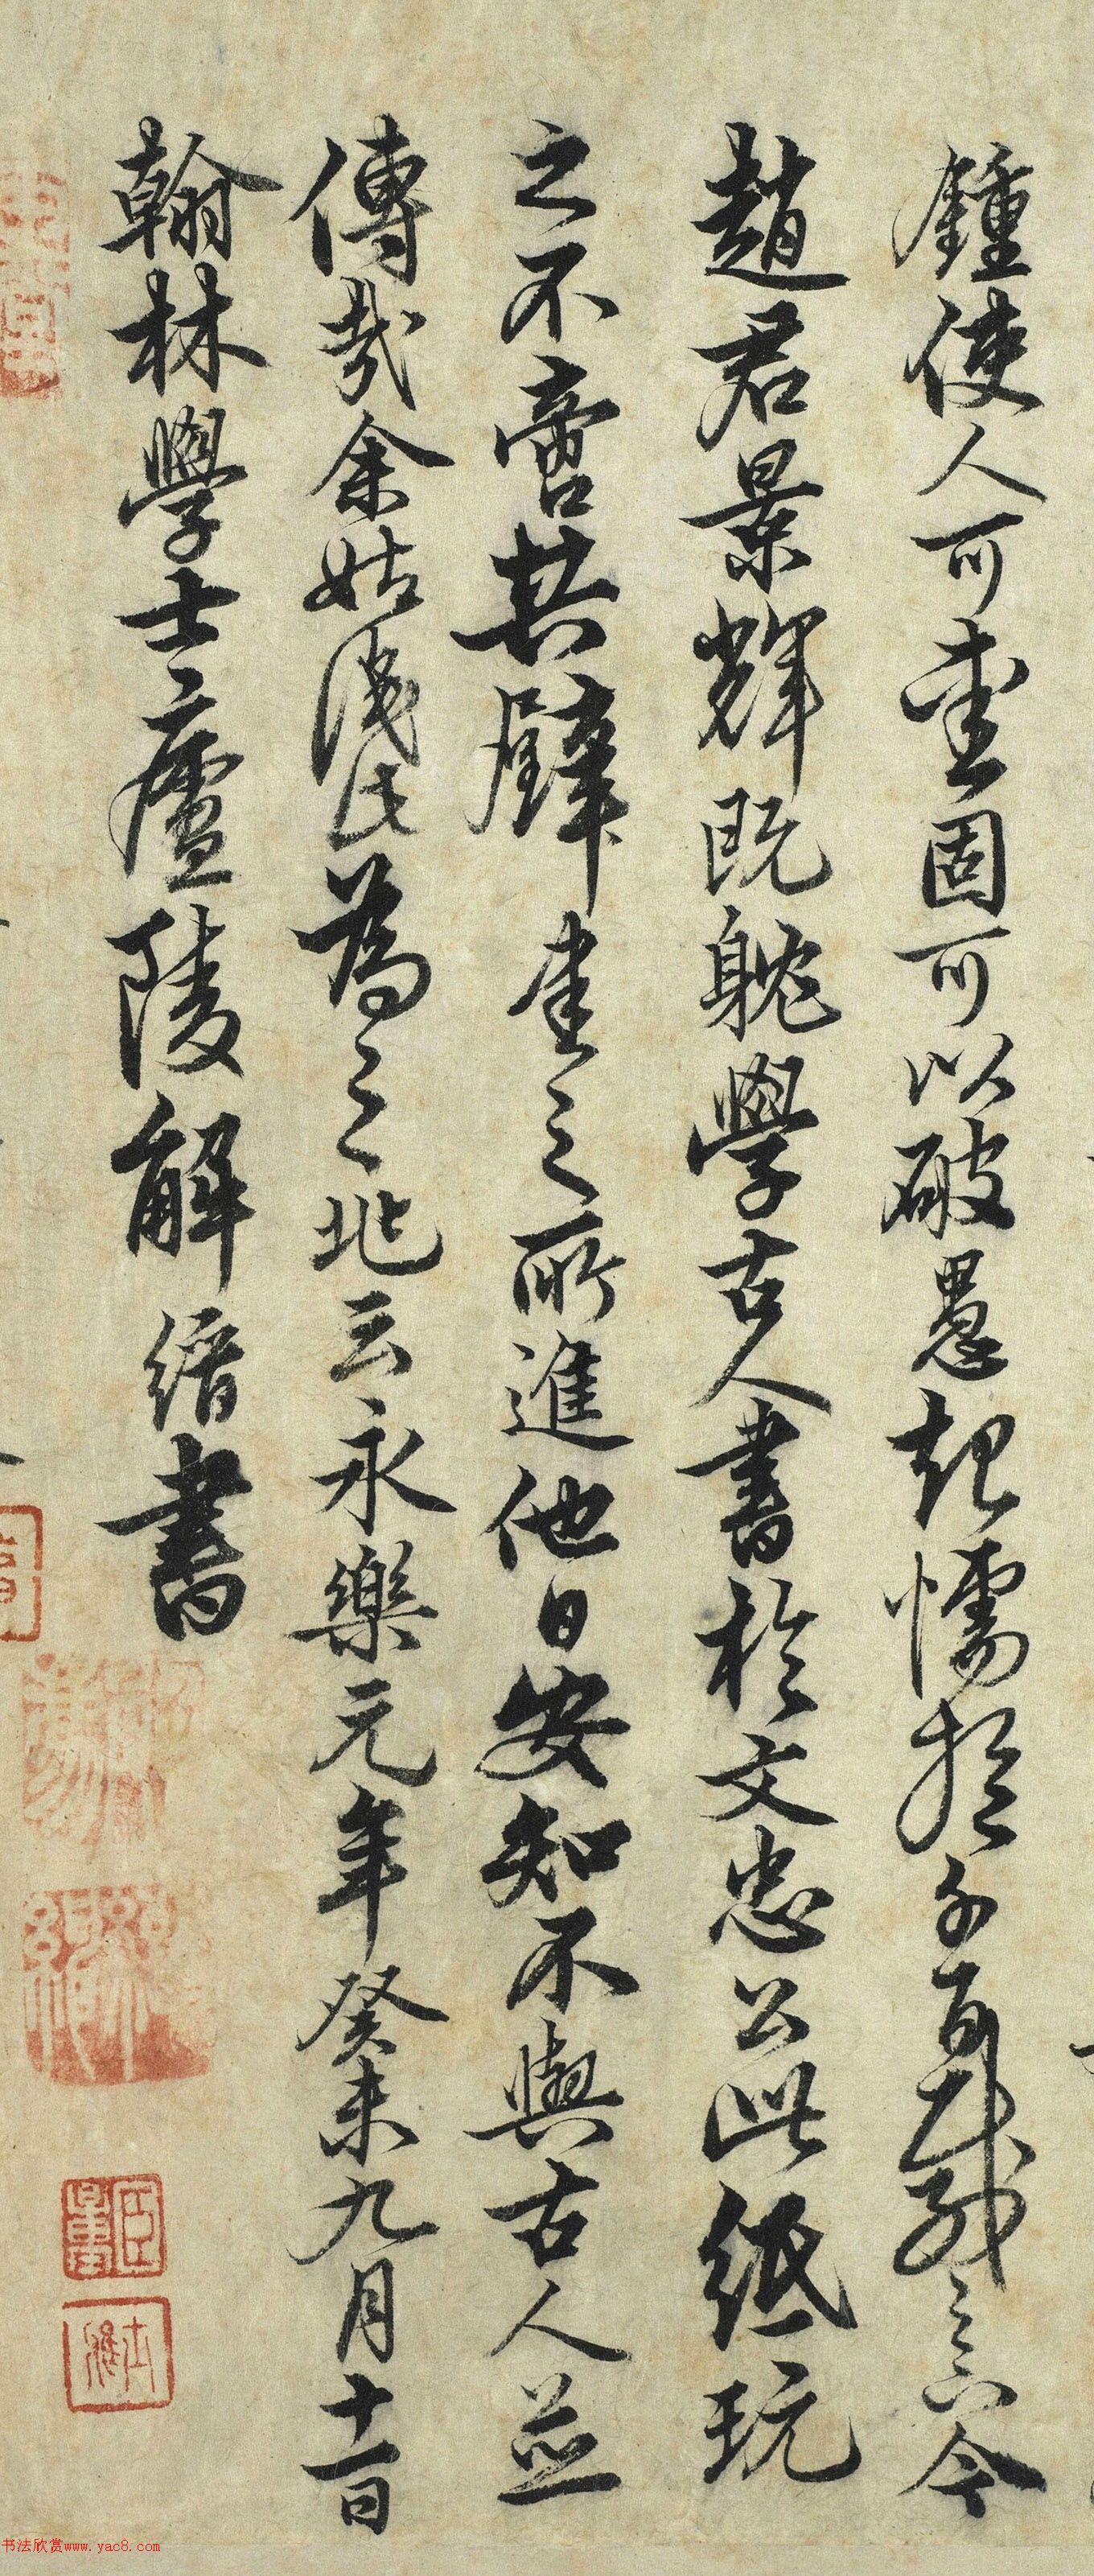 鍾使人可愛固可以破愚起懦於千百載之下今
趙君景輝既躭學古人書於文忠公此紙玩
之不啻拱璧書之所進他日安知不與古人並
傳哉余姑識此為之兆云永樂元年癸未九月十一日
翰林學士廬陵解縉書
书法欣赏www.yac8.com